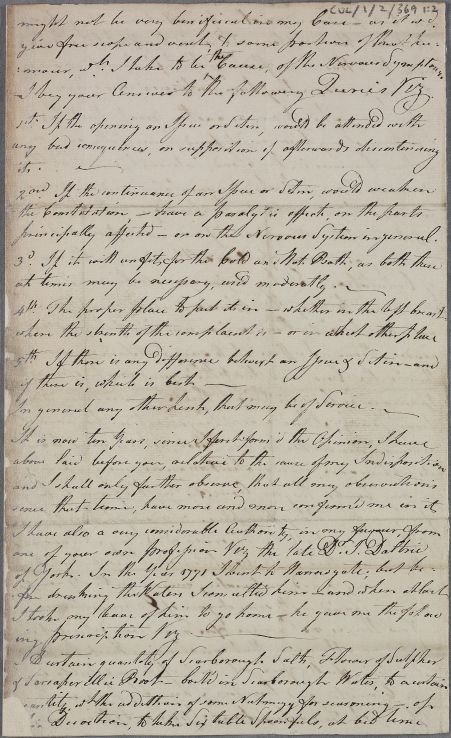 CUL/1/2/369 1:2
might not be very beneficial in my Case - as it wd.
give free scope and vent to some portion of that hu=
:mour, wh. I take to be the Cause, of the Nervous Symptoms.
I beg your Answer to the following Queries Viz.
1st. If the opening an Issue or Seton, would be attended with
any bad consequences, on supposition of afterwards discontinuing
it. -
2nd. If the continuance of an Issue or Seton, would weaken
the Constitution, - have a paralytic effect, on the parts
principally affected - or on the Nervous System in general.
3d. If it will unfit for the Cold and Hot Bath, as both these
at times may be necessary, used moderately. -
4th. The proper place to put it in - whether in the left breast
where the of the complaint is - or in what other place
5th. If there is any difference betwixt an Issue & Seton - and
if there is, which is best -
In general any other hints, that may be of Service. -
It is now ten Years, since I first form'd the Opinion, I have
above laid before you, relative to the cause of my Indisposition
and I shall only further observe, that all my observations
since that time, have more and more confirm'd me in it
I have also a very considerable Authority, in my favour from
one of your own profession Viz. the late Dr.
of York. In the Year 1771 I went to Harrowgate; but be
fore drinking the Waters I consulted him - and when about
I took my leave of him to go home - he gave me the follow
ing prescription Viz -
A certain quantity of Scarborough Salts, Flower of Sulpher
& Sarsaparilla Root - boil'd in Scarborough Water, to a certain
quantity, wt. the addition of some Nutmeg for seasoning - of
Decoction, to take Six table Spoonfuls, at bed time